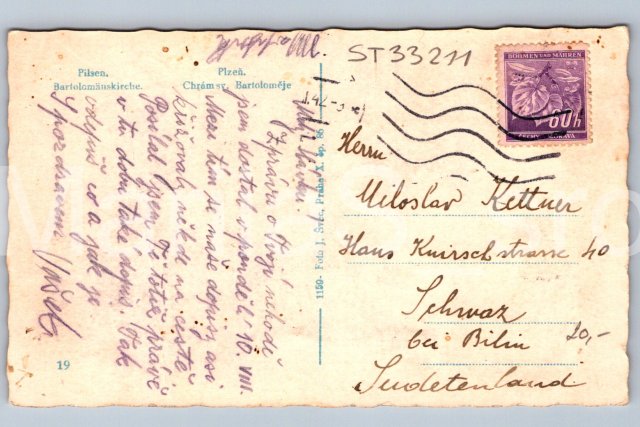 Pilsen.
Bartolomäuskirche.
Plzeň.
Chrám sv. Bartoloměje
ST33211
BÖHMEN UND MÄHREN
60h
ČECHY A MORAVA
Zprávu o Tvojí nehodě
jsem dostal v pondělí 10. VIII.
Mezi tím se naše dopisy asi
křižovaly někde na cestě
Poslal jsem Ti totiž právě
v tu dobu také dopis. Tak
odepiš co a jak je
S pozdravem
1150 - Foto J. Švec, Praha X. čp. 86
Herrn
Miloslav Kettner
Hans Knirschstrasse 40
Schwaz
bei Bilin
20,-
Sudetenland
19